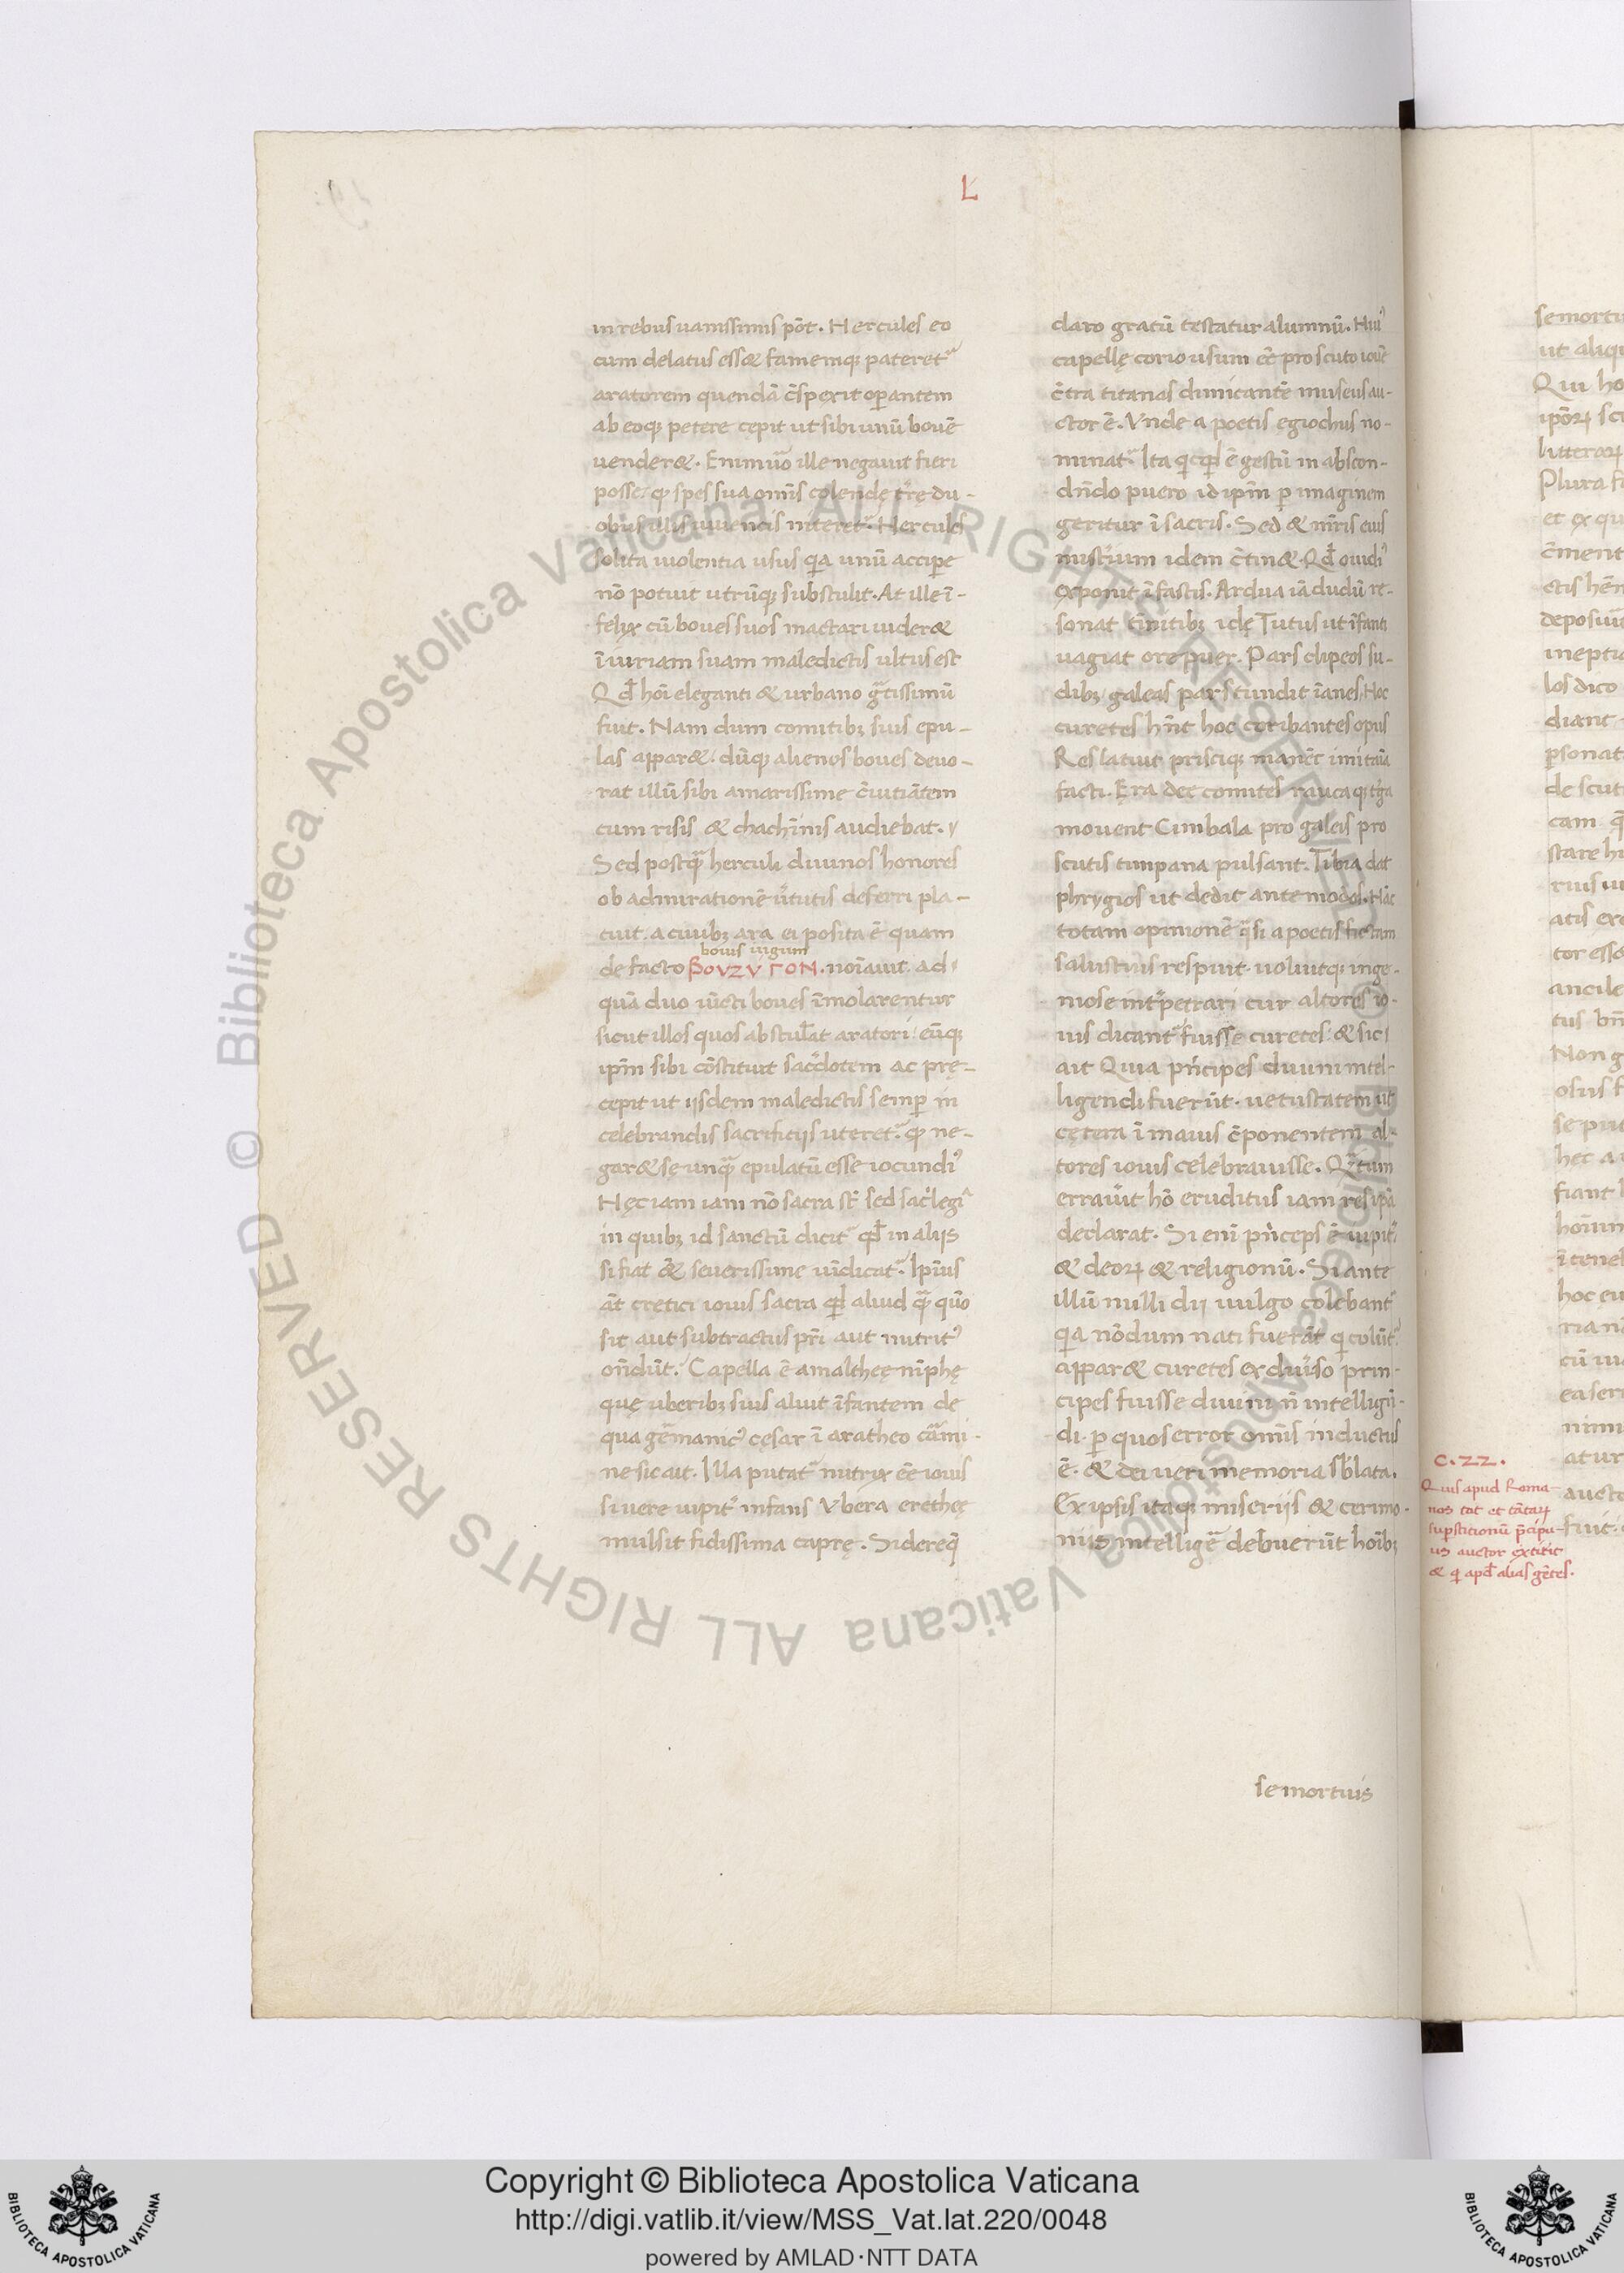 L
in rebus uanissimis pōt. Hercules eo
cum delatus esset famemq; pateret᷑
aratorem quendā c̄spexit op̄antem
ab eoq; petere cępit ut sibi unū bouē
uenderet. Enimuō ille negauit fieri
posse: qꝫ spes sua om̄is colendę t̄rę du-
obus illis iuuencis niteret᷑. Hercules
solita uiolentia usus qa unū accip̄e
nō potuit utrūq; substulit. At ille ī-
felyx cū boues suos mactari uideret
īiuriam suam maledictis ultus est
Qd̄ hoī eleganti et urbano gr̄atissimū
fuit. Nam dum comitibꝫ suis epu-
las apparet. dūq; alienos boues deuo-
rat illū sibi amarissime c̄uitiātem
cum risis et chachīnis audiebat.
Sed postqꝫ herculi diuinos honores
ob admirationē u̓tutis deferri pla-
cuit. a ciuibꝫ ara ei posita ē quam
bouis iugum
de facto βουζυγον. noīauit. ad
quā duo iūcti boues īmolarentur
sicut illos quos abstul̄at aratori: eūq;
ip̄m sibi cōstituit sac̓dotem ac prę-
cepit ut ijsdem maledictis semp̄ in
celebrandis sacrificijs uteret᷑. qꝫ ne-
garet se unqꝫ epulatū esse iocundi᾽
Hęc iam iam nō sacra st̄ sed sac̓legi᷑
in quibꝫ id sanctū dicit᷑ qd̄ in alijs
si fiat et seuerissime uīdicat᷑. Ipīus
āt cretici iouis sacra qd̄ aliud qꝫ quō
sit aut subtractus pr̄i aut nutrit᾽
on̄dūt. Capella ē amaltheę nīphę
quę uberibꝫ suis aluit īfantem de
qua gēmanic᾽ cęsar ī aratheo cāmi-
ne sic ait. Illa putat᷑ nutryx eē iouis
si uere iupit᾽ infans Vbera cretheę
mulsit fidissima caprę. Sidereq̄
claro gratū testatur alumnū. Hui᾽
capellę corio usum eē pro scuto iouē
c̄tra titanas dimicantē museus au-
ctor ē. Vnde a poetis ęgiochus no-
minat᷑ Ita qcqd̄ ē gestū in abscon-
dn̄do puero id ip̄m p̄ imaginem
geritur ī sacris. Sed et mr̄is eius
mist̓ium idem c̄tinet. Qd̄ ouidi᾽
exponit ī fastis. Ardua iā dudū re-
sonat tīnitibꝫ idę Tutus ut īfanti
uagiat ore puer. Pars clipeos su-
dibꝫ galeas pars tundit īanes. Hoc
curetes hn̄t hoc coribantes opus
Res latuit prisciq; manēt imitaīa
facti. Era deę comites raucaq; t̓ga
mouent Cimbala pro galeis pro
scutis timpana pulsant. Tibia dat
phrygios ut dedit ante modos. Hāc
totam opinionē qsi a poetis fictam
salustius respuit. uoluitq; inge-
niose int̓petrari cur altores io-
uis dicant᷑ fuisse curetes: et sic
ait Quia pn̓cipes diuini intel-
ligendi fuerūt. uetustatem ut
cętera ī maius c̄ponentem al-
tores iouis celebrauisse. Qꝫtum
errauit hō eruditus iam res ip̄a
declarat. Si enī pn̓ceps ē iupit᾽
et deoꝝ et religionū. Si ante
illū nulli dij uulgo colebant᷑
qa nōdum nati fuerāt q colūt᷑.
apparet curetes ex diu̓so prin-
cipes fuisse diuini n̄ intelligēn-
di. p̄ quos error om̄is inductus
ē. et dei ueri memoria sb̄lata.
Ex ipsis itaq; miserijs et cerimo-
nijs intellige᷑ debuerūt hoībꝫ
se mortuis
C. 22.
Quis apud Roma-
nos tot et tātaꝝ
sup̄stitionū p̄cipu-
us auctor extitit
et q apd̄ alias gētes.
Copyright © Biblioteca Apostolica Vaticana
http://digi.vatlib.it/view/MSS_Vat.lat.220/0048
powered by AMLAD·NTT DATA
BIBLIOTECA APOSTOLICA VATICANA
BIBLIOTECA APOSTOLICA VATICANA
© Biblioteca Apostolica Vaticana ALL RIGHTS RESERVED
© Biblioteca Apostolica Vaticana ALL RIGHTS RESERVED